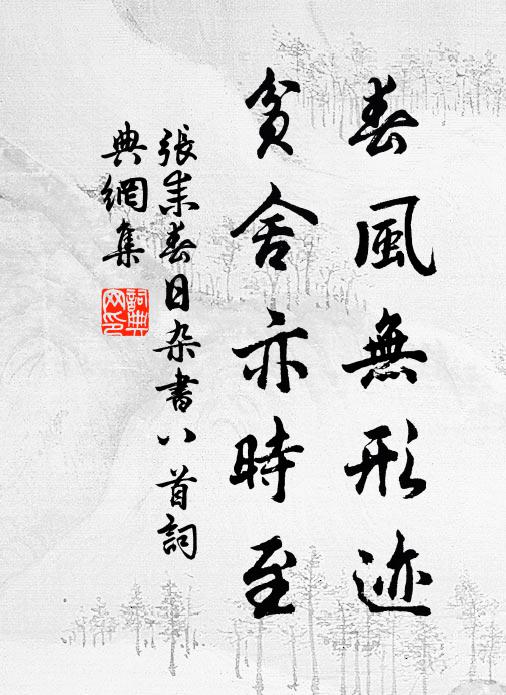 春風無形迹
貧舍亦時至
張耒春日杂書八首詞
典網集
詞典网印